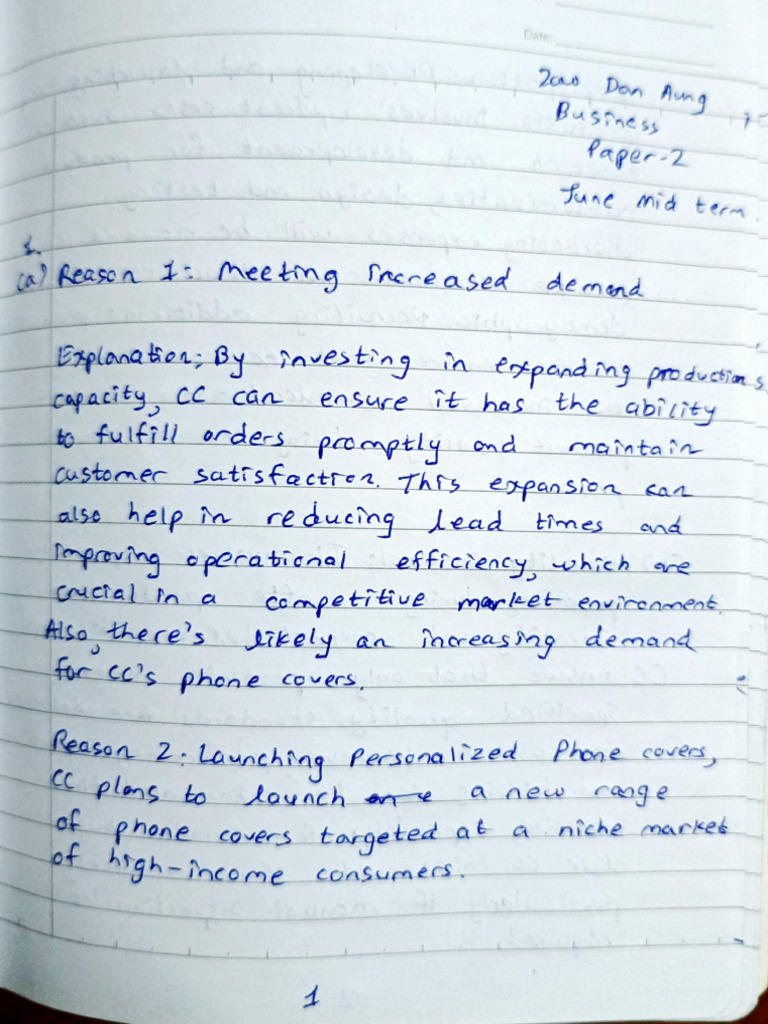 Date:
Dan Aung
Business
Paper-2
June Mid term.
1.
(a) Reason 1: Meeting increased demand
Explanation: By investing in expanding productions
capacity, CC can ensure it has the ability
to fulfill orders promptly and maintain
customer satisfaction. This expansion can
also help in reducing lead times and
improving operational efficiency, which are
crucial in a competitive market environment.
Also, there's likely an increasing demand
for CC's phone covers.
Reason 2: Launching Personalized Phone covers,
CC plans to launch a new range
of phone covers targeted at a niche market
of high-income consumers.
1